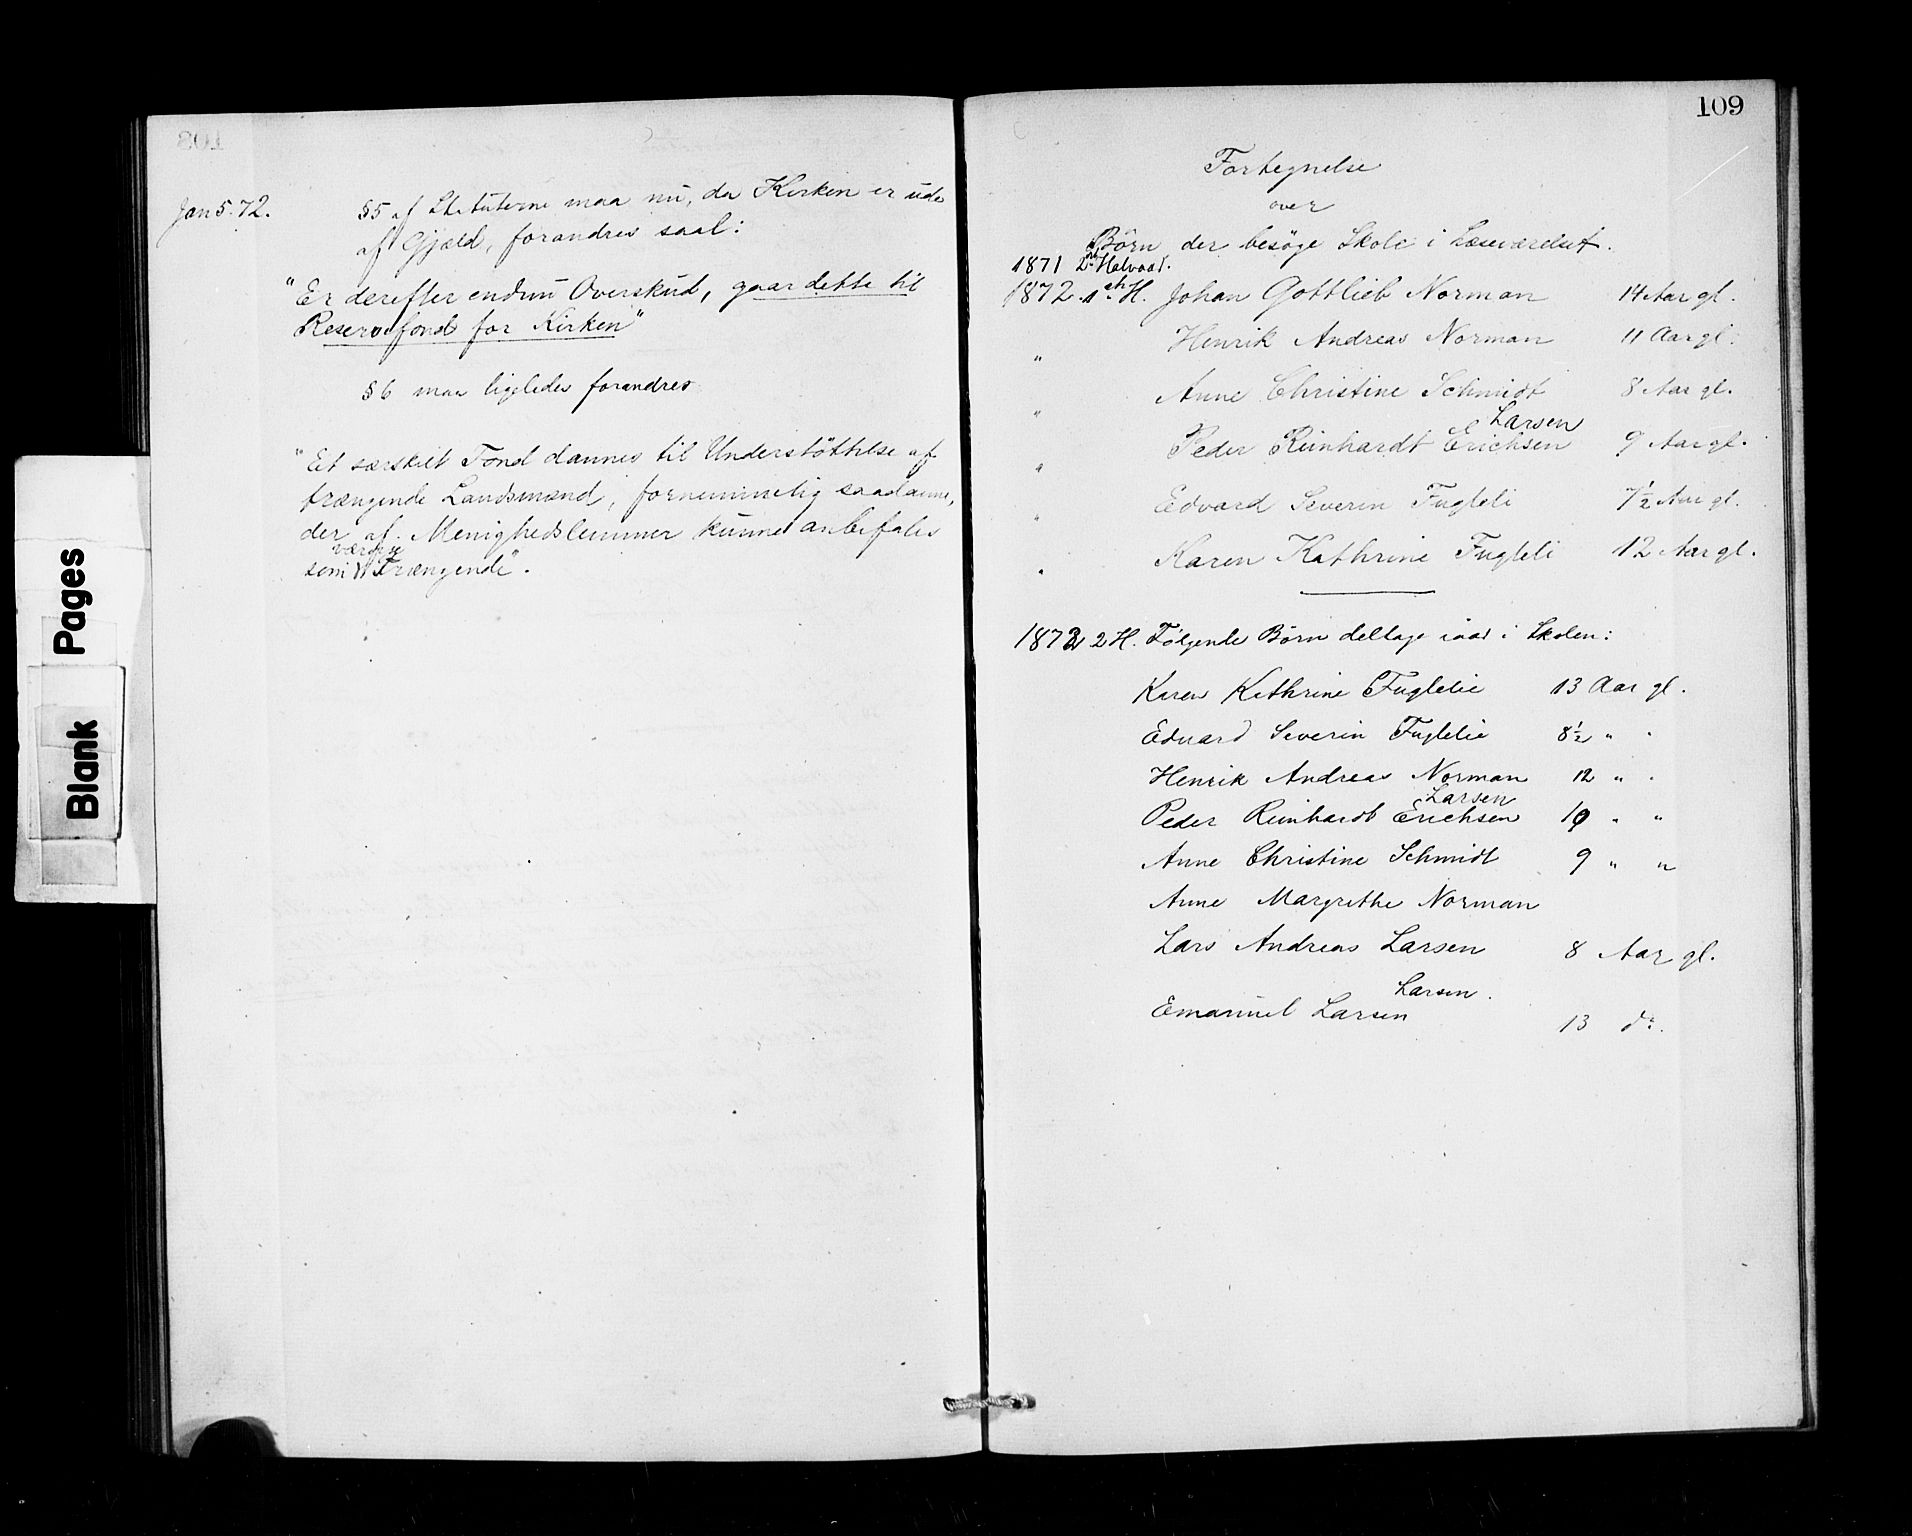 Jan 5. 72. §5 af Statuterne maa nu, da Kirken er ude
af Gjæld, forandres saal:
"Er derefter endnu Overskud, gaar dette til
Reservefond for Kirken"
§6 maa ligeledes forandres
"Et særskilt Fond dannes til Understöttelse af
trængende Landsmænd, fornemmelig saadanne,
der af Menighedslemmer kunne anbefales
værdige
som Trængende".
109
Fortegnelse
over
Börn der besöge Skole i Læseværelset.
1871 2den Halvaar.
1872. 1ste H. Johan Gottlieb Norman 14 Aar gl.
" Henrik Andreas Norman 11 Aar gl.
" Anne Christine Schmidt 8 Aar gl.
Larsen
" Peder Reinhardt Erichsen 9 Aar gl.
" Edvard Severin Fugleli 7½ Aar gl.
" Karen Kathrine Fugleli 12 Aar gl.
1872 2 H. Følgende Börn deltage iaar i Skolen:
Karen Kathrine Fuglelie 13 Aar gl.
Edvard Severin Fuglelie 8½ " "
Henrik Andreas Norman 12 " "
Larsen
Peder Reinhardt Erichsen 10 " "
Anne Christine Schmidt 9 " "
Anne Margrethe Norman
Lars Andreas Larsen 8 Aar gl.
Larsen.
Emanuel Larsen 13 do.
Blank Pages